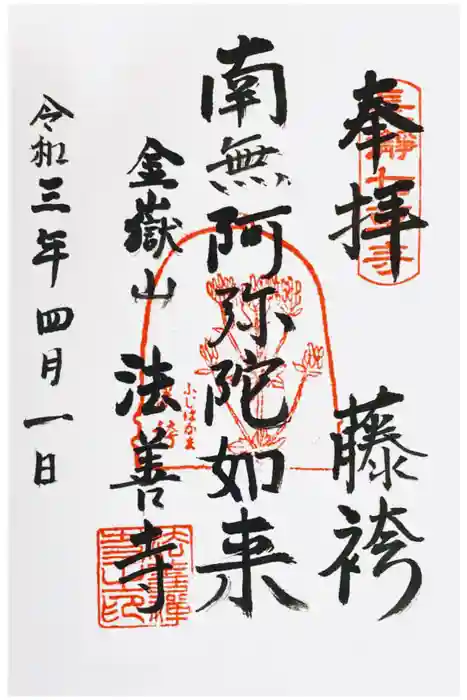 奉拝
藤袴
南無阿弥陀如来
ふじばかま
金嶽山
法善寺
令和三年四月一日